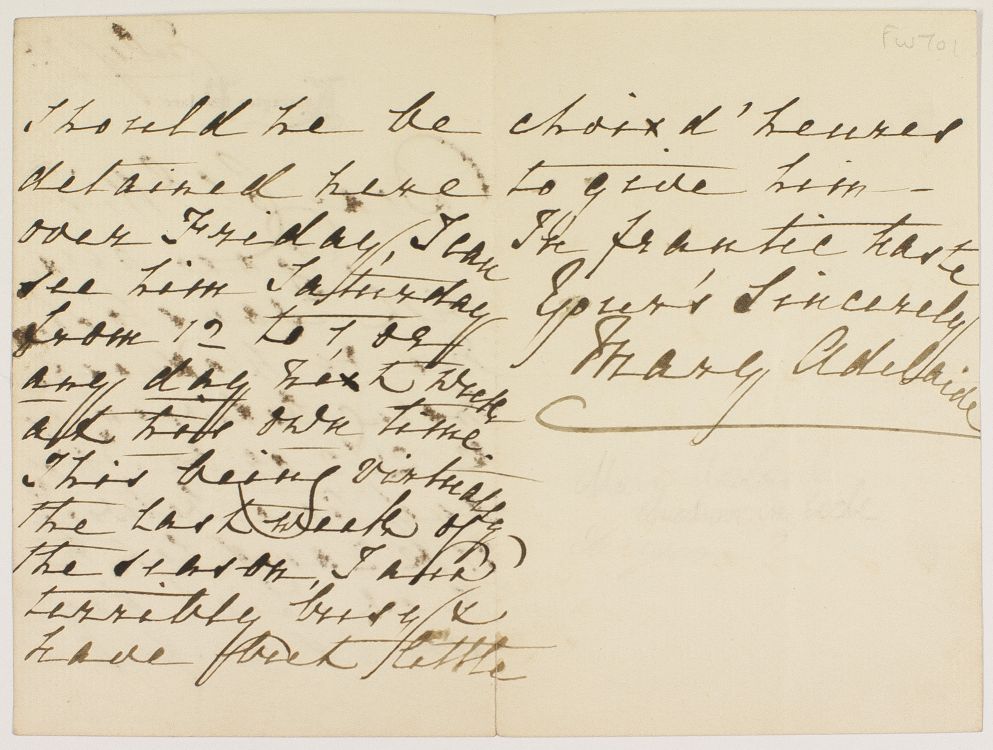 Should he be
detained here
over Friday, I can
see him Saturday
from 12 to 1 or
any day next week
at his own time
This being virtually
the last week of
the season, I am
terribly busy &
have but little
FW701
choix d'heures
to give him —
In frantic haste
Your's Sincerely
Mary Adelaide